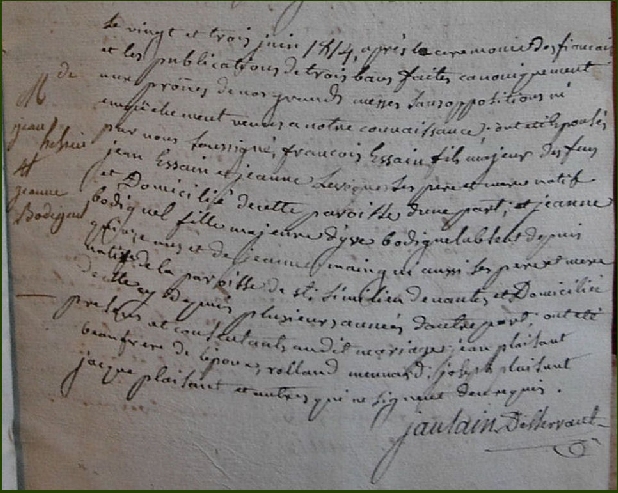 Le vingt et trois juin 1814, après la ceremonie des fiancail
et les publications de trois bans faites canoniquement
aux prônes de nos grandes messes sans oppositions ni
empêchement venus a notre connoissance, ont été épousés
par nous soussigné, francois Essain fils majeur des feus
jean Essain et jeanne ses pere et mere natif
et Domicilié de cette paroisse d'une part; et jeanne
bodiguel fille majeure d'yve bodiguel absent depuis
mois et de jeanne aussi ses pere et mere
native de la paroisse de st. similien de nantes et Domiciliée
de celle cy depuis plusieurs années d'autre part ont été
presens et consentants au dit mariage jean plaisant
beaufrere de l'epoux, rolland joseph plaisant
jacque plaisant et autres qui ne signent de ce requis.
jaulain Desservant
M de
jean
et
jeanne
Bodiguel